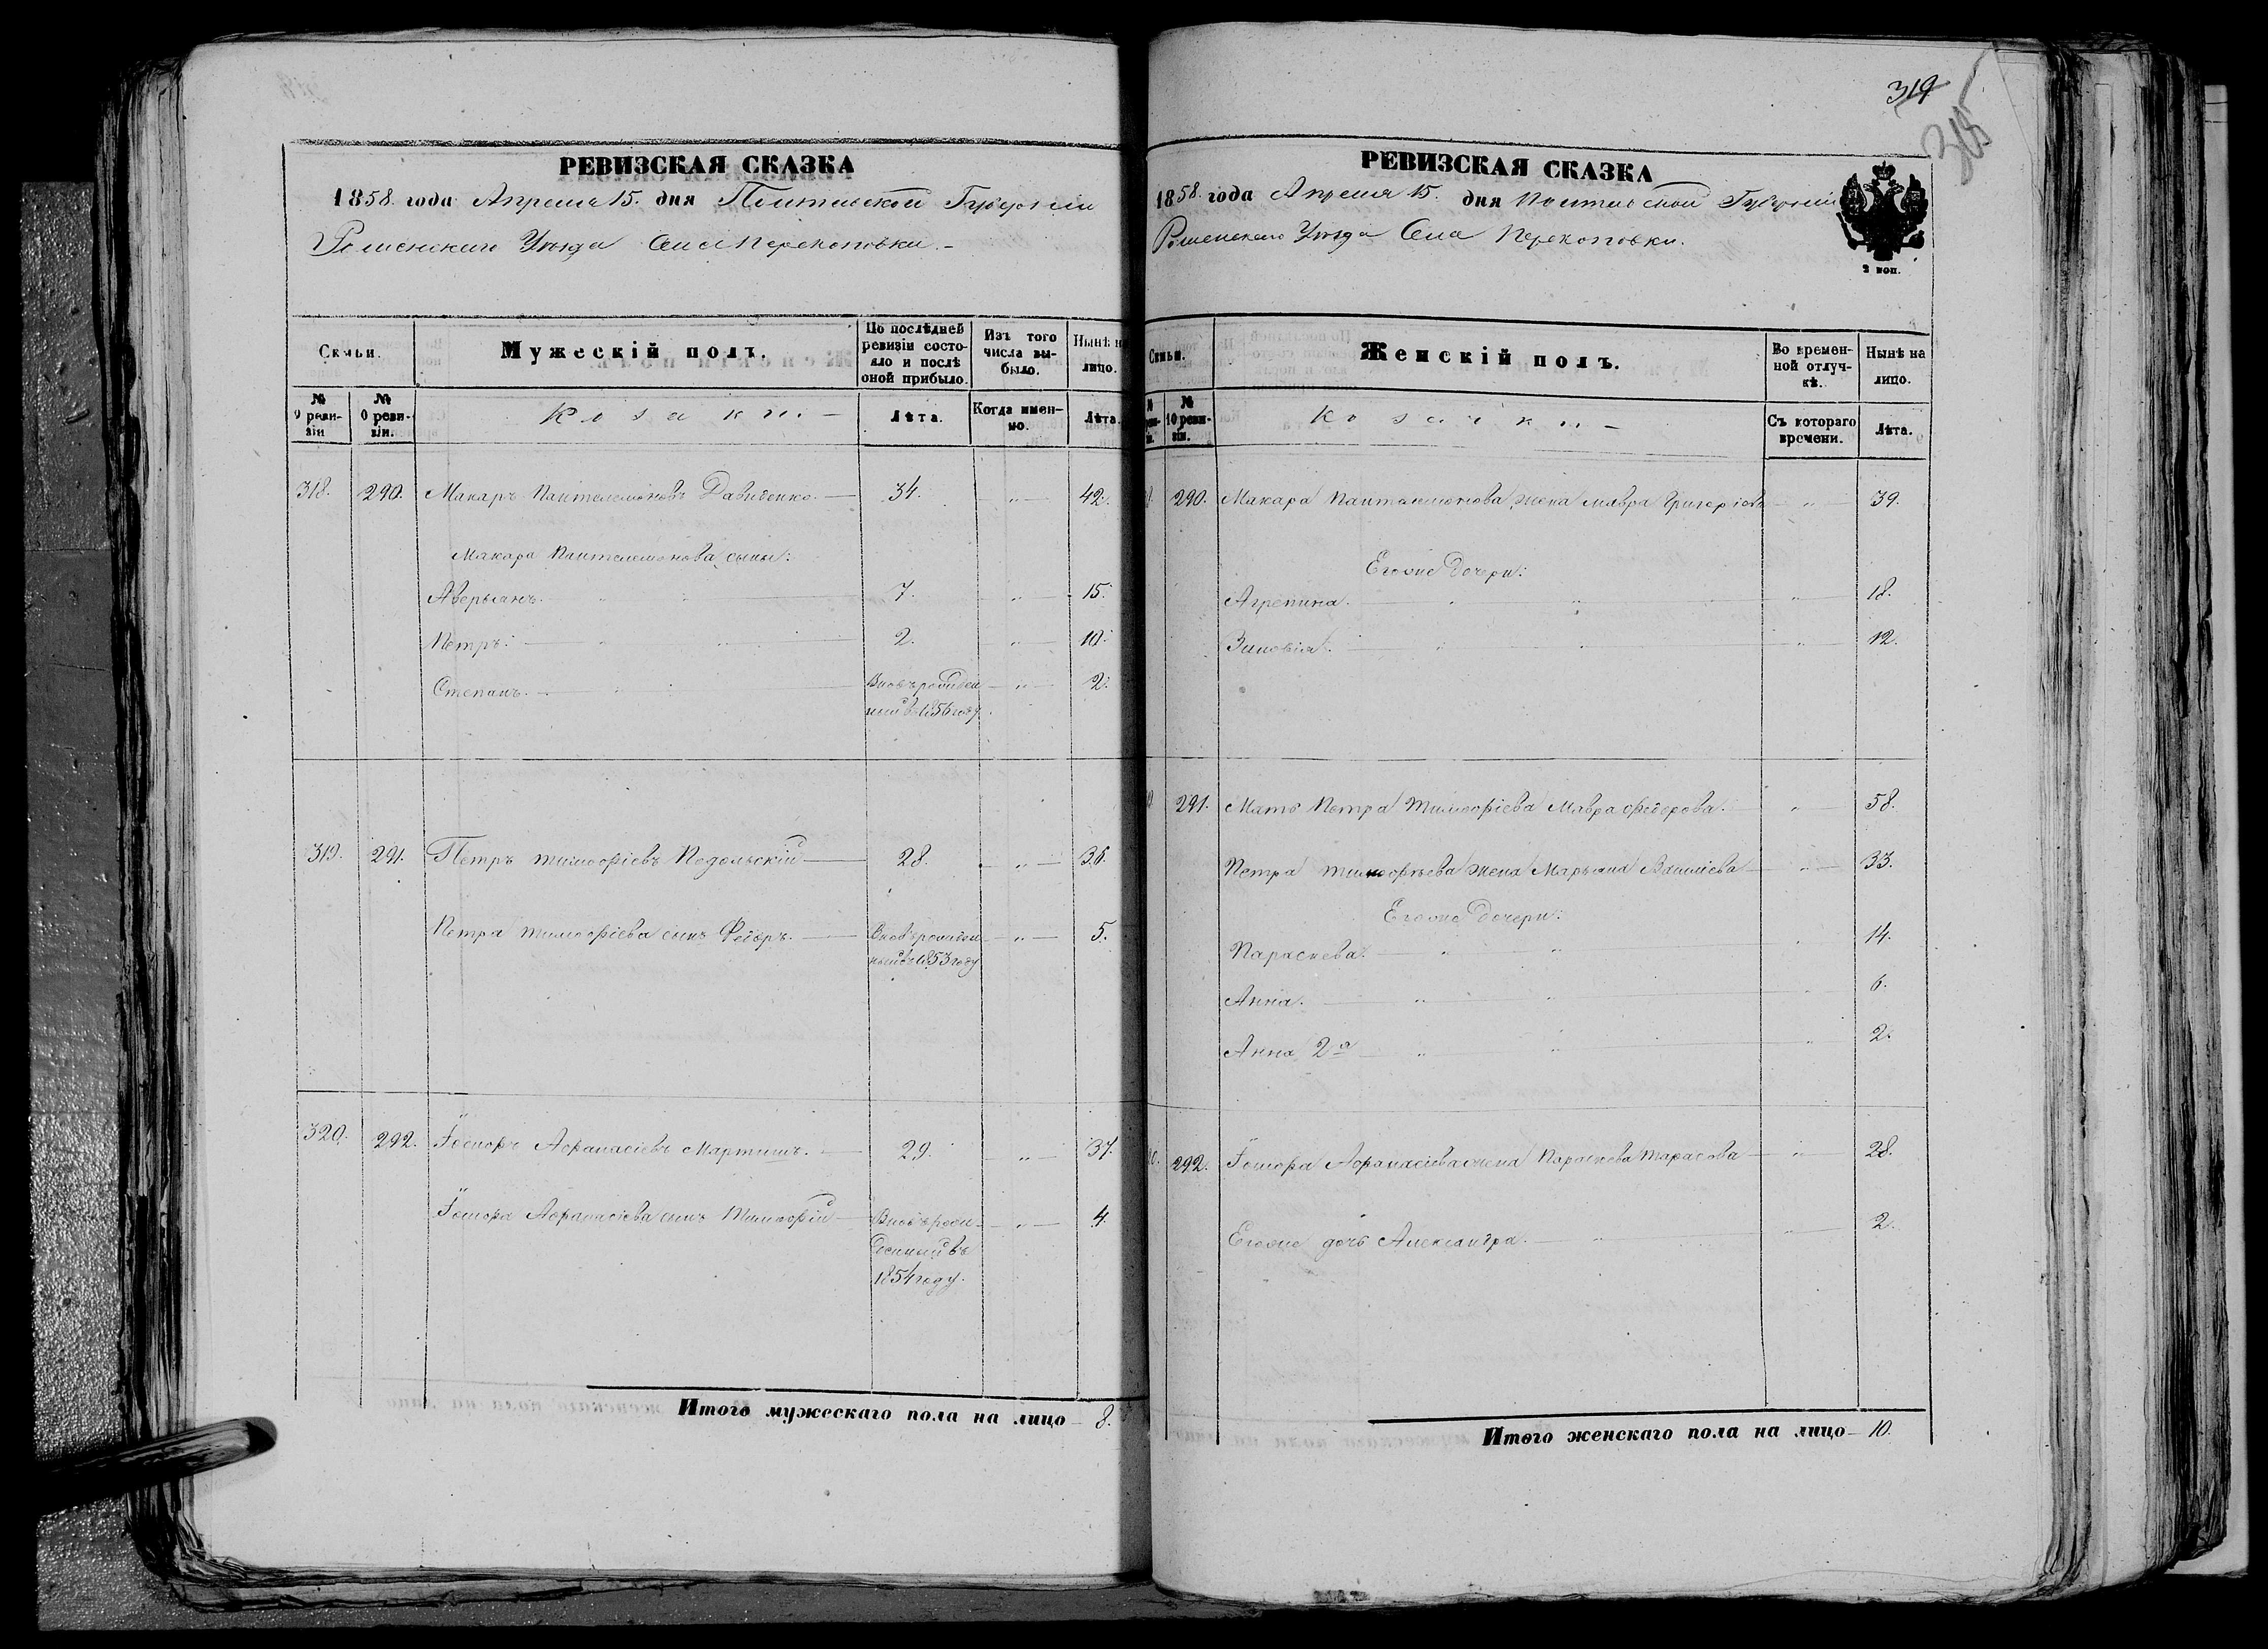 РЕВИЗСКАЯ СКАЗКА
1858. года Апреля 15. дня Полтавской Губерніи
Роменскаго Уѣзда Села Перекоповки. -
Семьи.
Мужескій полъ.
По послѣдней ревизіи состояло и послѣ оной прибыло.
Изъ того числа выбыло.
Нынѣ на лицо.
№ 9 ревизіи
№ 0 ревизіи.
Козаки. -
Лѣта.
Когда именно.
Лѣта.
318. 290. Макаръ Пантелемоновъ Давиденко. — 34. — „ — 42.
Макара Пантелемонова сыны:
Аверьянъ. „ „ — 7. „ — 15.
Петръ. — „ „ — 2. „ — 10.
Степанъ. — „ — Вновьрожден — „ — 2.
ный въ 1856 году.
319. 291. Петръ Тимофіевъ Подольскій — 28. — „ — 36.
Петра Тимофіева сынъ Федоръ. — Вновьрожден — „ — 5.
ный въ 1853 году
320. 292. Іосифъ Афанасіевъ Мартишъ. — 29. — „ — 37.
Іосифа Афанасіева сынъ Тимофій — Вновьрож- — „ — 4.
денный въ
1854 году.
Итого мужескаго пола на лицо — 8.
319
315
РЕВИЗСКАЯ СКАЗКА
1858. года Апреля 15. дня Полтавской Губерніи
Роменскаго Уѣзда Села Перекоповки.
2 коп.
Семьи.
Женскій полъ.
Во временной отлучкѣ.
Нынѣ на лицо.
№ 10 ревизіи.
Козачки -
Съ котораго времени.
Лѣта.
290. Макара Пантелемонова жена Мавра Григоріева — „ — 39.
Егоже дочери:
Агрепина. — „ „ — „ — 18.
Зиновія. — „ „ — „ — 12.
291. Мать Петра Тимофіева Мавра Федорова. „ — 58.
Петра Тимофѣева жена Марьяна Василіева — „ — 33.
Егоже дочери:
Параскева. — „ „ „ 14.
Анна. — „ „ „ 6.
Анна 2я — „ „ „ 2.
292. Іосифа Афанасіева жена Параскева Тарасова — „ — 28.
Егоже дочь Александра. — „ — „ — 2.
Итого женскаго пола на лицо — 10.